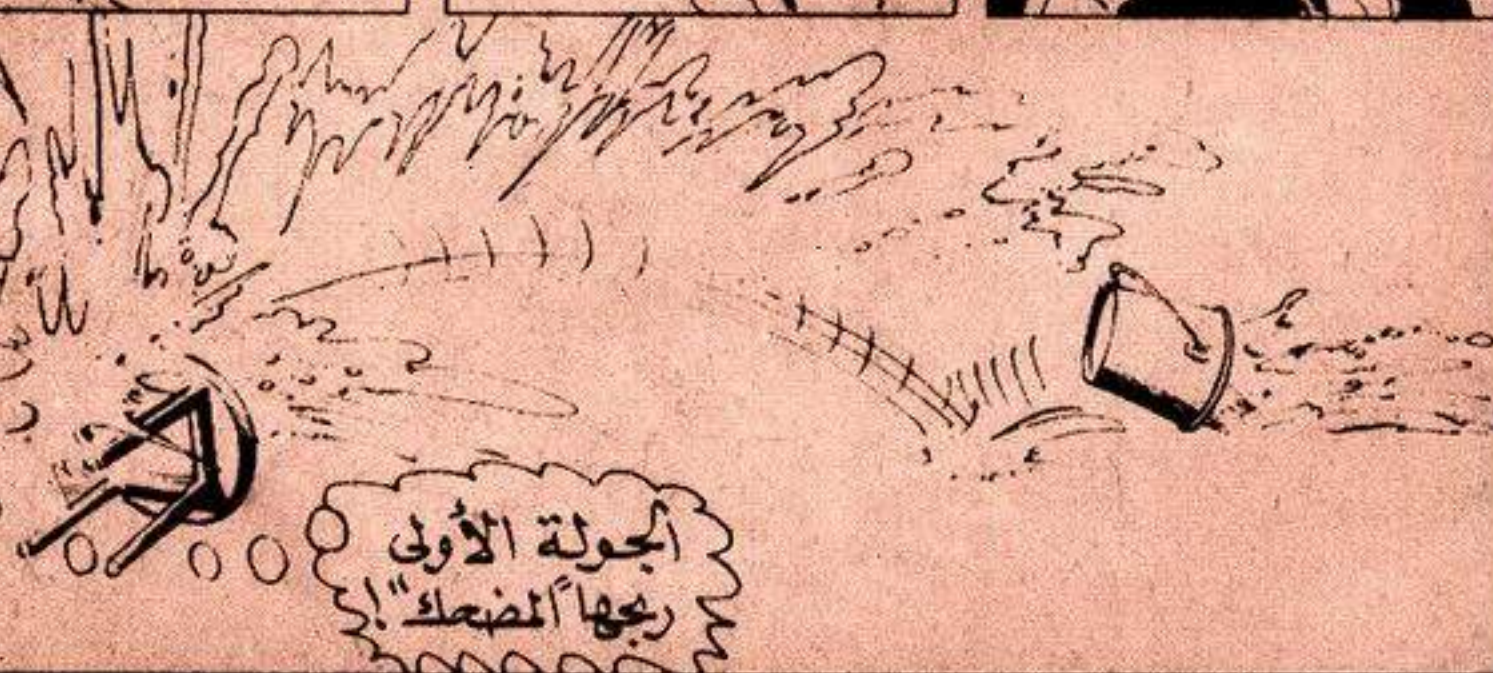 الجولة الأولى
ربحها "المضحك"!